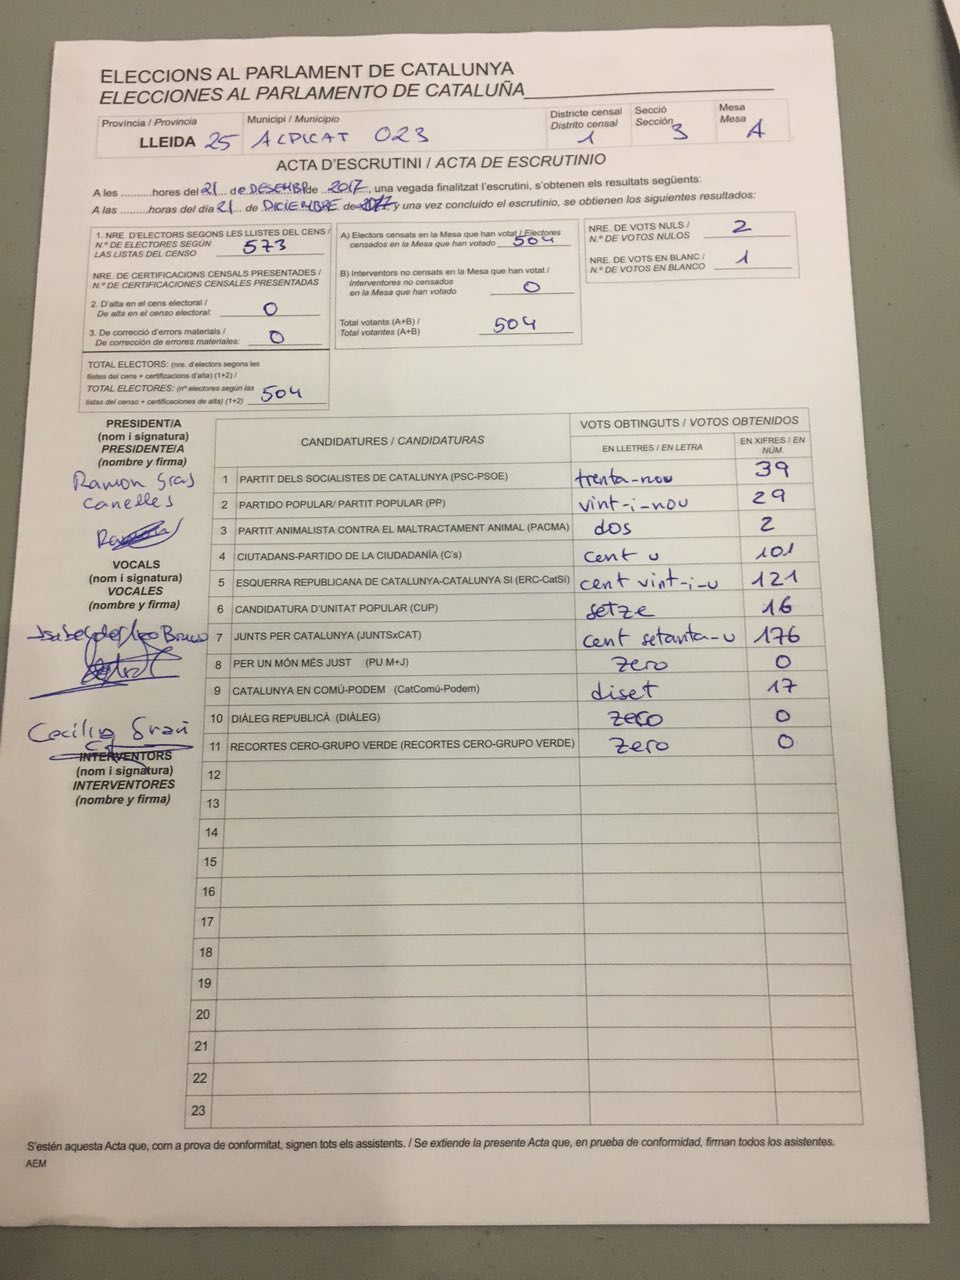 ELECCIONS AL PARLAMENT DE CATALUNYA
ELECCIONES AL PARLAMENTO DE CATALUÑA
Província / Provincia
LLEIDA 25
Municipi / Municipio
ALPICAT 023
Districte censal
Distrito censal
1
Secció
Sección
3
Mesa
Mesa
A
ACTA D'ESCRUTINI / ACTA DE ESCRUTINIO
A les ..........hores del 21 de DESEMBRE de 2017, una vegada finalitzat l'escrutini, s'obtenen els resultats següents:
A las .........horas del día 21 de DICIEMBRE de 2017 y una vez concluido el escrutinio, se obtienen los siguientes resultados:
1. NRE. D'ELECTORS SEGONS LES LLISTES DEL CENS /
N.º DE ELECTORES SEGÚN
LAS LISTAS DEL CENSO 573
NRE. DE CERTIFICACIONS CENSALS PRESENTADES /
N.º DE CERTIFICACIONES CENSALES PRESENTADAS
2. D'alta en el cens electoral /
De alta en el censo electoral: 0
3. De correcció d'errors materials /
De corrección de errores materiales: 0
TOTAL ELECTORS: (nre. d'electors segons les
llistes del cens + certificacions d'alta) (1+2) /
TOTAL ELECTORES: (nº electores según las
listas del censo + certificaciones de alta) (1+2) 504
A) Electors censats en la Mesa que han votat / Electores
censados en la Mesa que han votado 504
B) Interventors no censats en la Mesa que han votat /
Interventores no censados
en la Mesa que han votado 0
Total votants (A+B) /
Total votantes (A+B) 504
NRE. DE VOTS NULS /
N.º DE VOTOS NULOS 2
NRE. DE VOTS EN BLANC /
N.º DE VOTOS EN BLANCO 1
PRESIDENT/A
(nom i signatura)
PRESIDENTE/A
(nombre y firma)
Ramon Gras
Canelles
VOCALS
(nom i signatura)
VOCALES
(nombre y firma)
Cecilia
INTERVENTORS
(nom i signatura)
INTERVENTORES
(nombre y firma)
CANDIDATURES / CANDIDATURAS
VOTS OBTINGUTS / VOTOS OBTENIDOS
EN LLETRES / EN LETRA
EN XIFRES / EN NÚM.
1 PARTIT DELS SOCIALISTES DE CATALUNYA (PSC-PSOE) trenta-nou 39
2 PARTIDO POPULAR/ PARTIT POPULAR (PP) vint-i-nou 29
3 PARTIT ANIMALISTA CONTRA EL MALTRACTAMENT ANIMAL (PACMA) dos 2
4 CIUTADANS-PARTIDO DE LA CIUDADANÍA (C's) cent u 101
5 ESQUERRA REPUBLICANA DE CATALUNYA-CATALUNYA SI (ERC-CatSI) cent vint-i-u 121
6 CANDIDATURA D'UNITAT POPULAR (CUP) setze 16
7 JUNTS PER CATALUNYA (JUNTSxCAT) cent setanta-u 176
8 PER UN MÓN MÉS JUST (PU M+J) zero 0
9 CATALUNYA EN COMÚ-PODEM (CatComú-Podem) diset 17
10 DIÀLEG REPUBLICÀ (DIÀLEG) zero 0
11 RECORTES CERO-GRUPO VERDE (RECORTES CERO-GRUPO VERDE) zero 0
12
13
14
15
16
17
18
19
20
21
22
23
S'estén aquesta Acta que, com a prova de conformitat, signen tots els assistents. / Se extiende la presente Acta que, en prueba de conformidad, firman todos los asistentes.
AEM